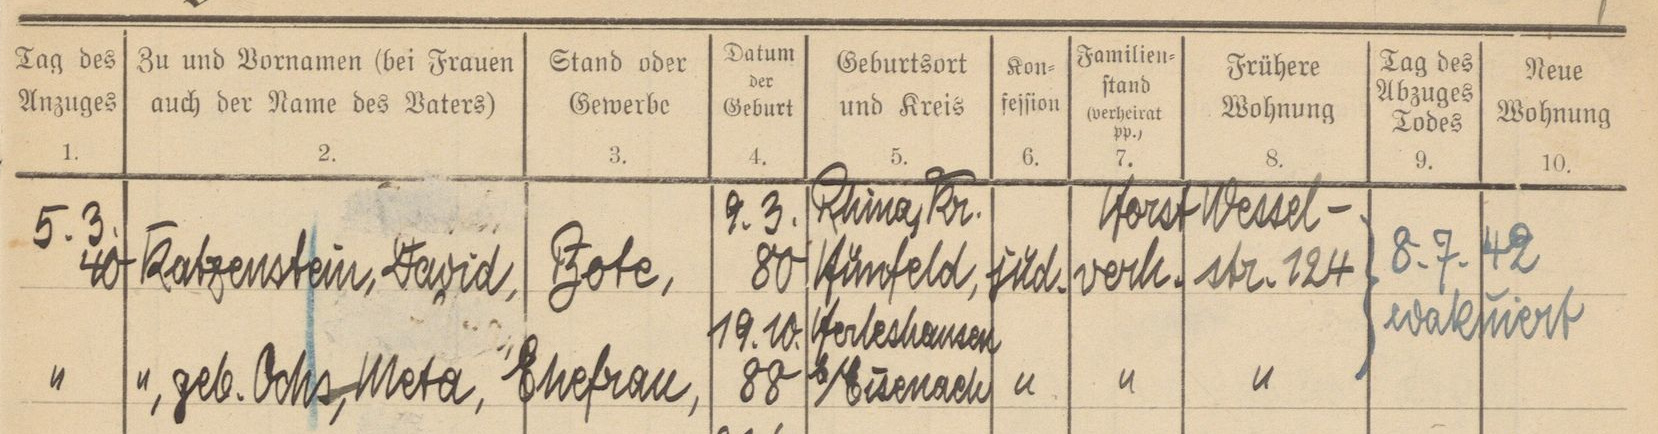 Tag des Anzuges 1.
Zu und Vornamen (bei Frauen auch der Name des Vaters) 2.
Stand oder Gewerbe 3.
Datum der Geburt 4.
Geburtsort und Kreis 5.
Kon-fession 6.
Familien-stand (verheirat pp.) 7.
Frühere Wohnung 8.
Tag des Abzuges Todes 9.
Neue Wohnung 10.
5. 3. 9. 3. Rhina, Kr. Horst Wessel-
40 Katzenstein, David, Bote, 80 Hünfeld, jüd. verh. str. 124 8. 7. 42
19. 10. Herleshausen evakuiert
" ", geb. Ochs, Meta, Ehefrau, 88 b/Eisenach " " "